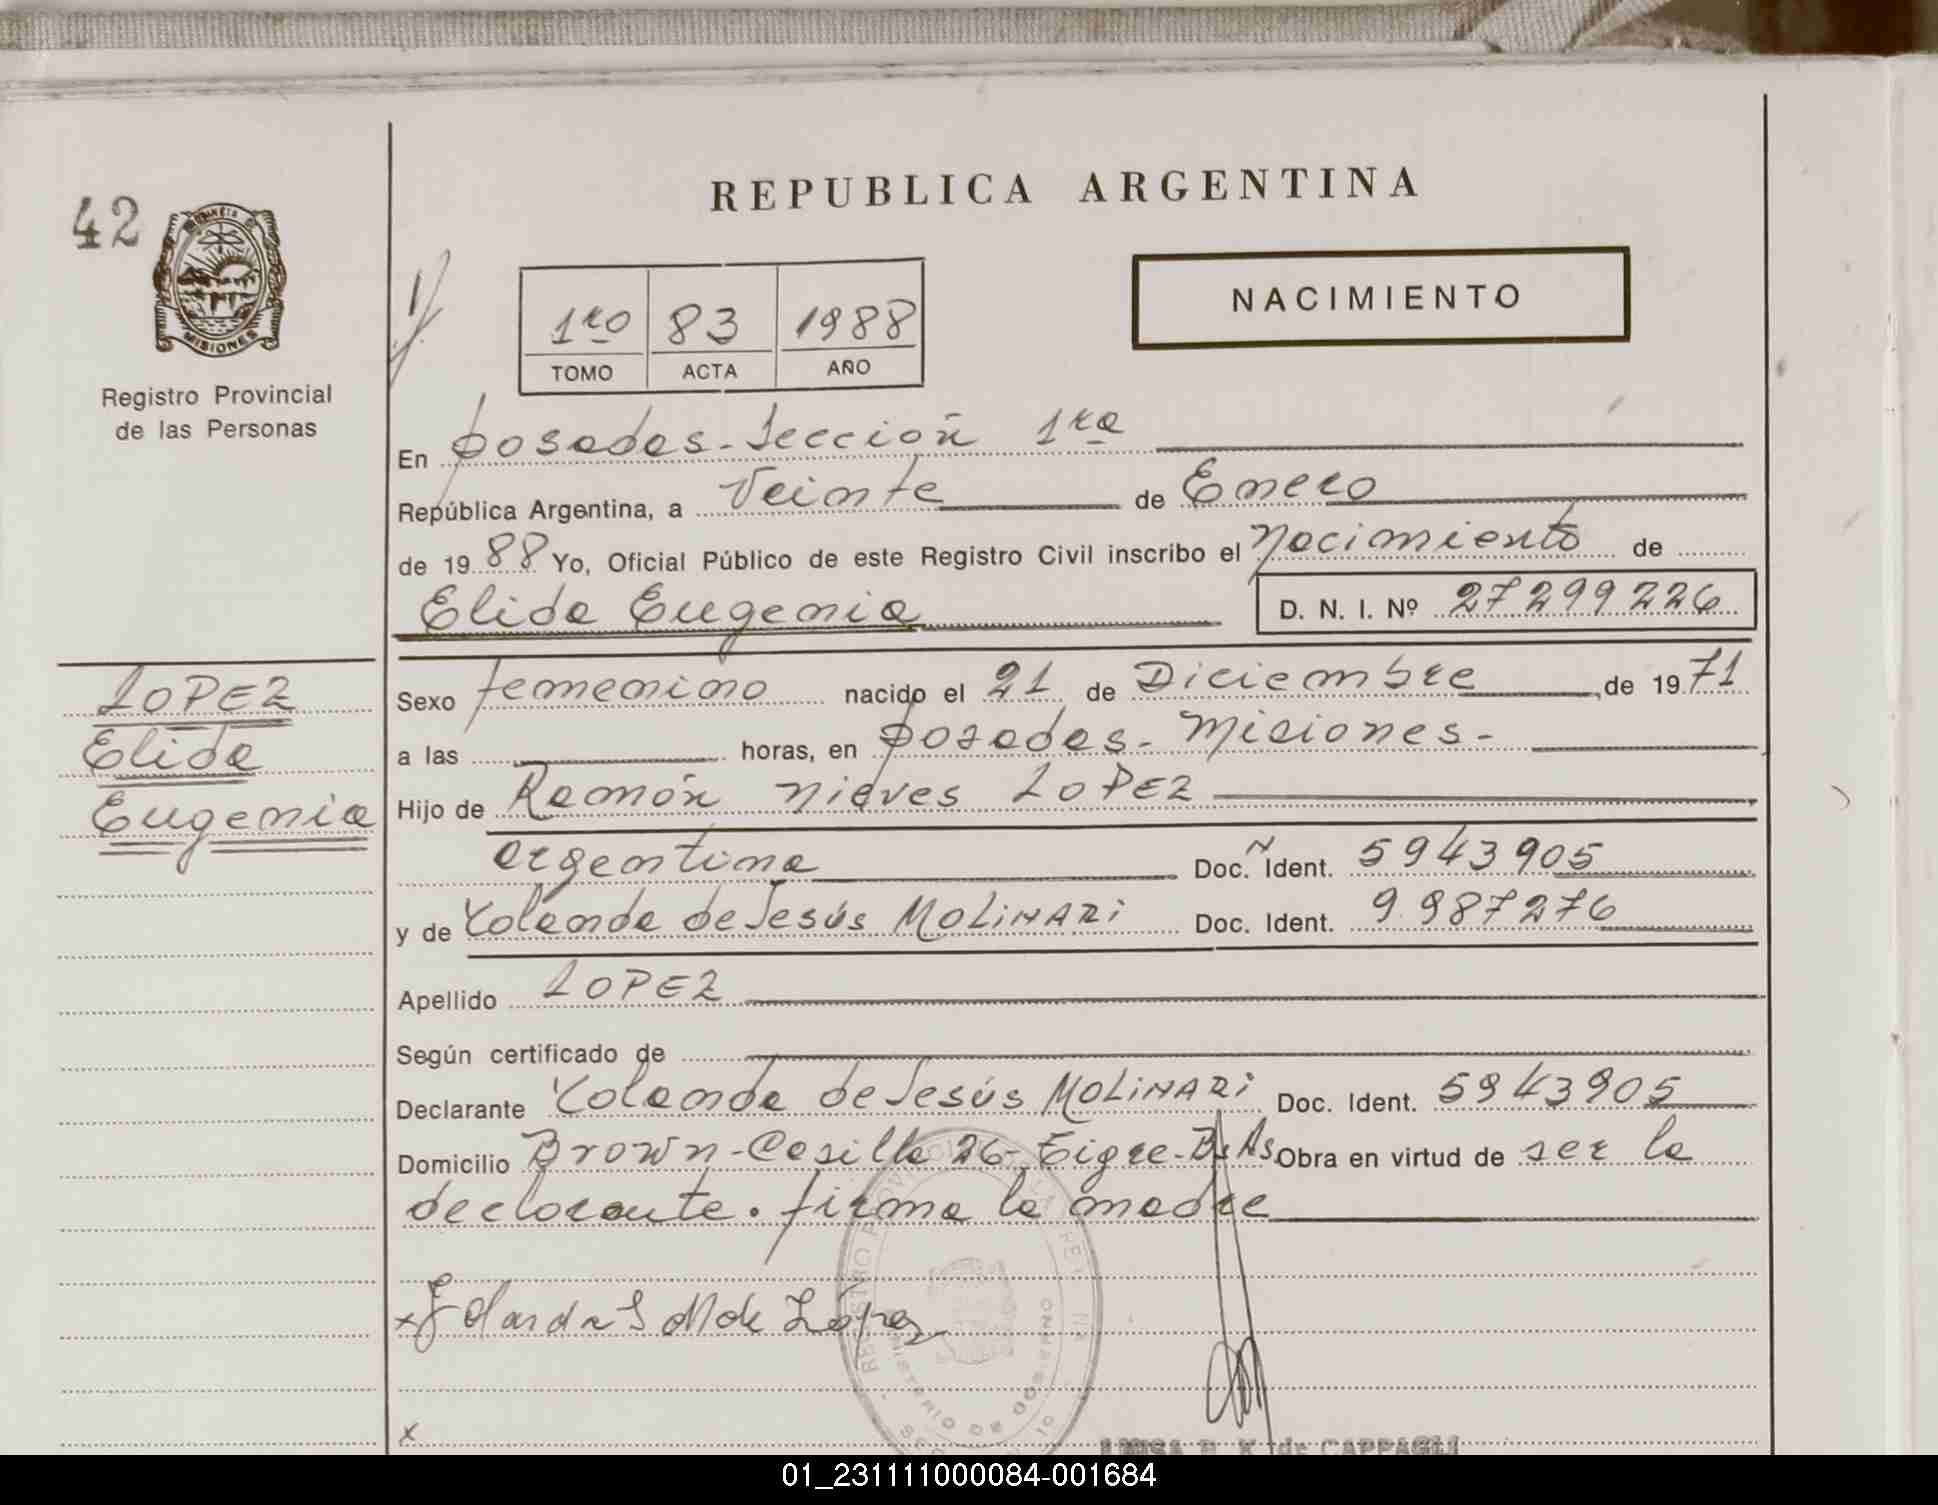 REPUBLICA ARGENTINA
42
MISIONES
Registro Provincial
de las Personas
1ro 83 1988
TOMO ACTA AÑO
NACIMIENTO
En Posadas - Sección 1ra
República Argentina, a Veinte de Enero
de 1988 Yo, Oficial Público de este Registro Civil inscribo el Nacimiento de
Elida Eugenia D. N. I. Nº 27299226
LOPEZ
Elida
Eugenia
Sexo femenino nacido el 21 de Diciembre, de 1971
a las horas, en Posadas - Misiones -
Hijo de Ramón Nieves LOPEZ
argentina Doc. Ident. 5943905
y de Yolanda de Jesús MOLINARI Doc. Ident. 9.987276
Apellido LOPEZ
Según certificado de
Declarante Yolanda de Jesús MOLINARI Doc. Ident. 5943905
Domicilio Brown - Casilla 26 - Tigre - Bs As. Obra en virtud de ser la
declarante. firma la madre
x Yolanda J M de López
x
LUISA E. K. de CAPPAGLI
01_231111000084-001684